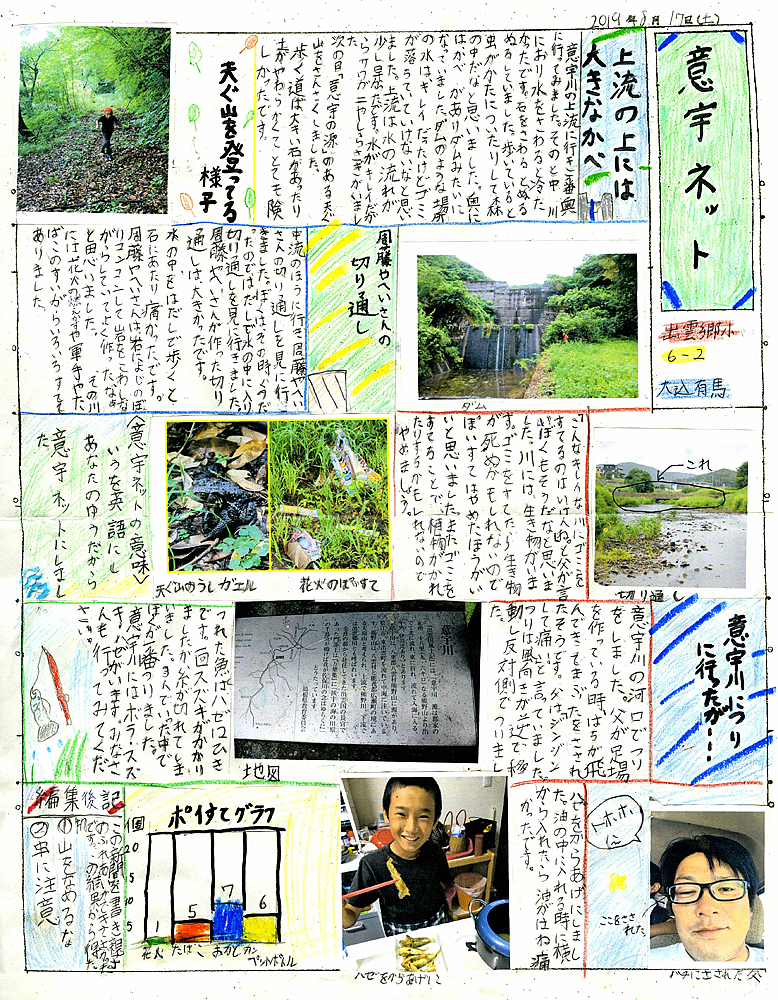 2019年8月17日(土)
意宇ネット
出雲郷小
6-2
大込有馬
上流の上には
大きなかべ
意宇川の上流に行き一番奥
に行ってみました。そのと中、川
におり水をさわると冷た
かったです。石をさわるとぬる
ぬるしていました。歩いていると
虫がかたについたりして森
の中だなと思いました。奥に
はかべがありダムみたいに
なっていました。ダムのような場所
の水はキレイだったけどゴミ
が落ちていていけないなと思い
ました。上流は水の流れが
少し早かったです。水がキレイだか
らサワガニやしらさぎがいました。
次の日「意宇の源」のある天ぐ
山をさんさくしました。
歩く道は大きい石があったり
土がやわらかくてとても険
しかったです。
天ぐ山を登ってる
様子
ダム
周藤やへいさんの
切り通し
中流のほうに行き周藤やへい
さんの切り通しを見に行
きました。ぼくはその時くつだ
ったのではだしで水の中に入り
切り通しを見に行きました。
周藤やへいさんが作った切り
通しは大きかったです。
水の中をはだしで歩くと
石にあたり痛かったです。
周藤やへいさんは岩によじのぼ
りコンコンして岩をこわしな
がらしていてよく作ったな
と思いました。その川
には花火のぽいすてや軍手やた
ばこのすいがらいろいろすてて
ありました。
これ
切り通し
「こんなきれいな川にごみを
すてるのはいけんね」と父が言い
ぼくもそうだなと思いま
した。川には、生き物がいま
す。ゴミをすてたら生き物
が死ぬかもしれないので
ぽいすてはやめたほうがい
いと思いました。またゴミを
すてることで、植物がかれ
たりするかもしれないので
やめましょう。
天ぐ山のうしガエル
花火のぽいすて
〈意宇ネットの意味〉
いうを英語にし
あなたのゆうだから
意宇ネットにしまし
た
意宇川につり
に行ったが・・・
意宇川の河口でつり
をしました。父が足場
を作っている時はちが飛
んできてまぶたをさされ
たそうです。父は「ジンジン
して痛い」と言っていました。
つりは風向きが逆で移
動し反対側でつりました。
意宇川
地図
つれた魚はハゼにひき
です。一回スズキがかかり
ましたが糸が切れてしま
いました。3人でいった中で
ぼくが一番つりました。
意宇川にはボラ・スズ
キ・ハゼがいます。みなさ
んも行ってみてくだ
さい。
トホホ
ここをさされた
ハチにさされた父
ハゼをからあげにしまし
た。油の中に入れる時に横
から入れたら油がはね痛
かったです。
ハゼをからあげに
ポイすてグラフ
個
20
15
10
5
1
5
7
6
花火
たばこ
おかし
カン
ペットボトル
編集後記
この新聞を書き終え
①山をなめるな
②虫に注意